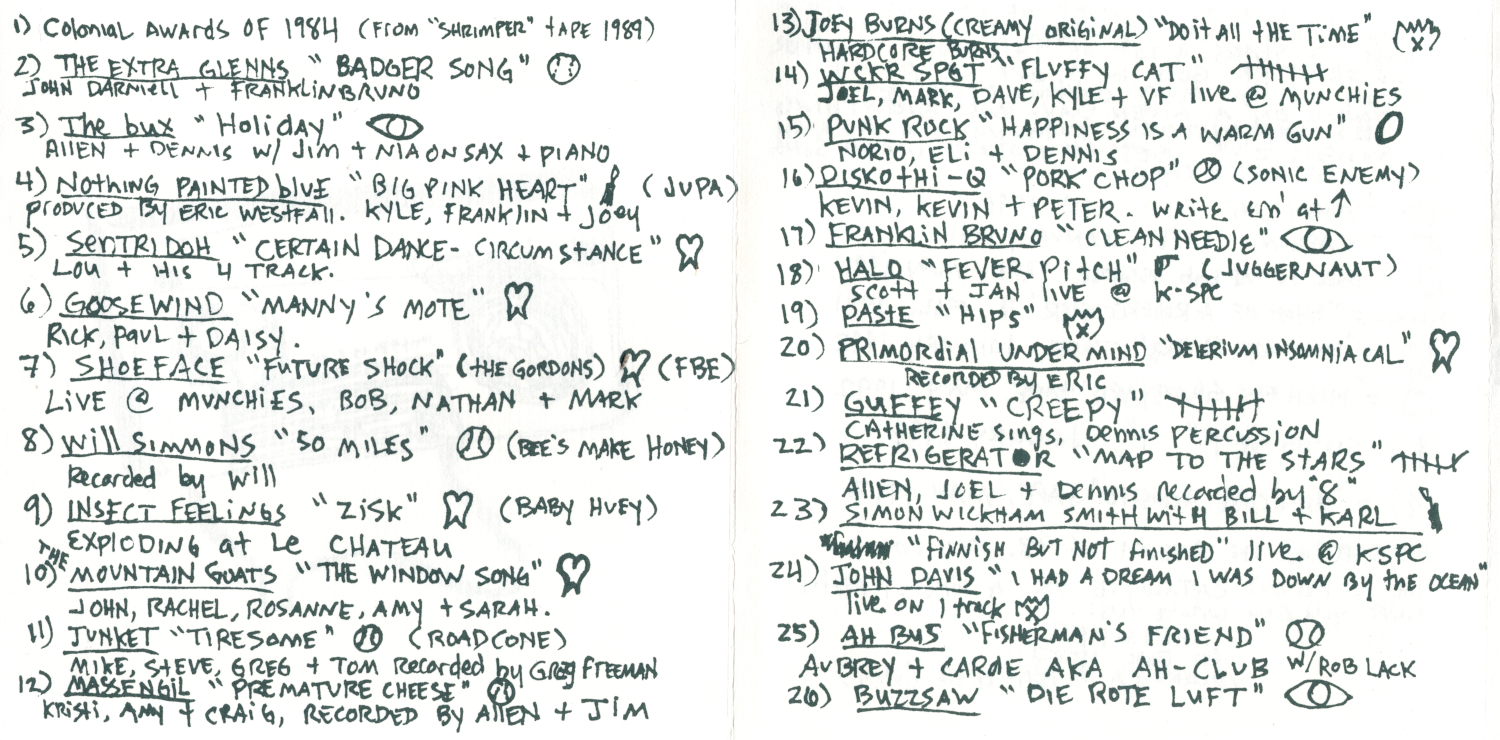 1) COLONIAL AWARDS OF 1984 (FROM "SHRIMPER" TAPE 1989)
2) THE EXTRA GLENNS "BADGER SONG"
JOHN DARNIELL + FRANKLIN BRUNO
3) The bux "Holiday"
AllEN + DENNIS w/ Jim + NIA ON SAX + PIANO
4) NOTHING PAINTED blUE "BIG PINK HEART" (JUPA)
PRODUCED BY ERIC WESTFAll. KYLE, FRANKlIN + Joey
5) SENTRIDOH "CERTAIN DANCE-CIRCUMSTANCE"
LOU + HIS 4 TRACK.
6) GOOSEWIND "MANNY'S MOTE"
RICK, PAUL + DAISY.
7) SHOEFACE "FUTURE SHOCK" (THE GORDONS) (FBE)
LIVE @ MUNCHIES, BOB, NATHAN + MARK
8) Will SIMMONS "50 MILES" (BEE'S MAKE HONEY)
Recorded by Will
9) INSECT FEELINGS "ZISK" (BABY HUEY)
EXPLODING at Le CHATEAU
10) THE MOUNTAIN GOATS "THE WINDOW SONG"
JOHN, RACHEL, ROSANNE, AMY + SARAH.
11) JUNKET "TIRESOME" (ROADCONE)
MIKE, STEVE, GREG + TOM Recorded by Greg FREEMAN
12) MASSENGIL "PREMATURE CHEESE"
KRISTI, AMY + CRAIG, RECORDED BY AllEN + JIM
13) JOEY BURNS (CREAMY ORIGINAL) "DO it All tHE TiME"
HARDCORE BURNS
14) WCKR SPGT "FLUFFY CAT"
JOEL, MARK, DAVE, KYLE + VF live @ MUNCHIES
15) PUNK ROCK "HAPPINESS IS A WARM GUN"
NORIO, ELI + DENNIS
16) DISKOTHI-Q "PORK CHOP" (SONIC ENEMY)
KEVIN, KEVIN + PETER. WRITE EM' at ↑
17) FRANKLIN BRUNO "CLEAN NEEDlE"
18) HALO "FEVER PitCH" (JUGGERNAUT)
SCOTT + JAN LIVE @ K-SPC
19) PASTE "HIPS"
20) PRIMORDIAL UNDERMIND "DELERIUM INSOMNIACAL"
RECORDED BY ERIC
21) GUFFEY "CREEPY"
CATHERINE sings, Dennis PERCUSSION
22) REFRIGERATOR "MAP TO THE STARS"
AllEN, JOEL + Dennis recorded by "8"
23) SIMON WICKHAM SMITH WITH BILL + KARL
"FINNISH BUT NOT finished" live @ KSPC
24) JOHN DAVIS "I HAD A DREAM I WAS DOWN BY the OCEAN"
live on 1 track
25) AH BUS "FISHERMAN'S FRIEND"
AUBREY + CAROE AKA AH-CLUB w/ ROB LACK
26) BUZZSAW "DIE ROTE LUFT"